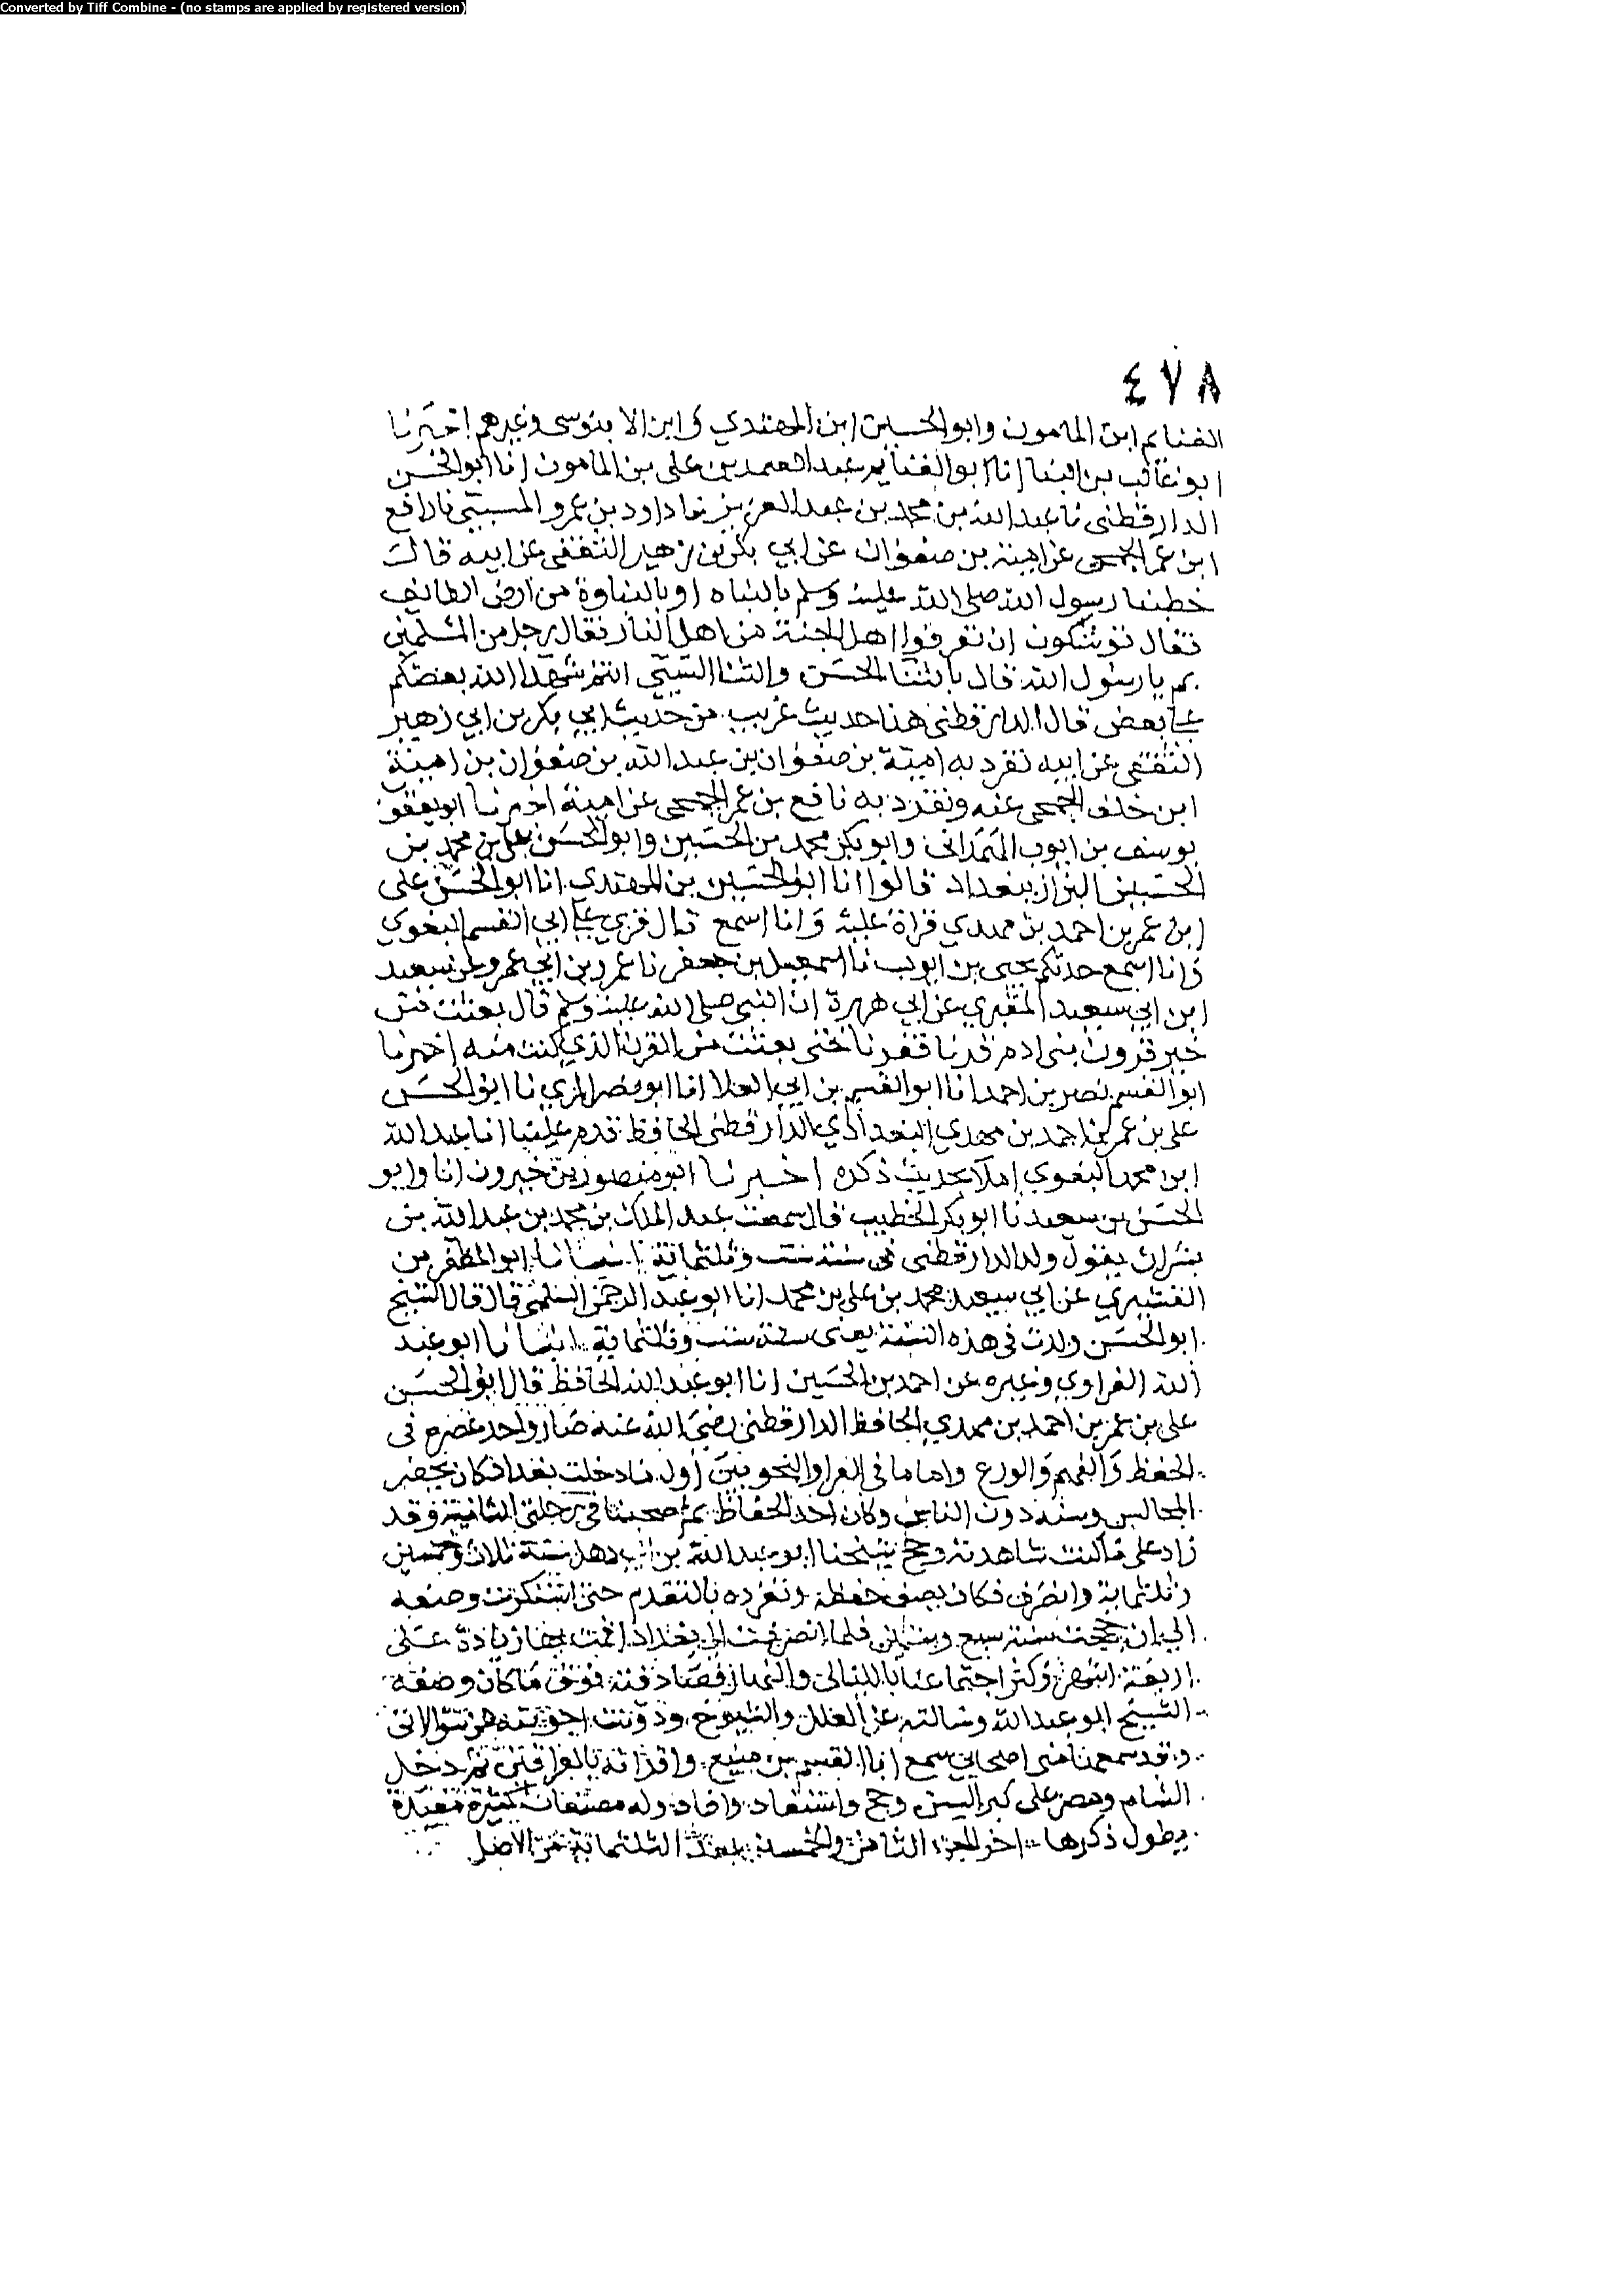 Converted by Tiff Combine - (no stamps are applied by registered version)
٤٧٨
الغنايم ابن المامون وابو الحسين ابن المهتدي وابن الابنوسى وغيرهم اخبرنا
ابو غالب بن البنا انا ابو الغنايم عبد الصمد بن على بن المامون انا ابو الحسن
الدارقطنى نا عبد الله بن محمد بن عبد العزيز نا داود بن عمرو المسيبى نا نافع
ابن عمر الجمحى عن امية بن صفوان عن ابي بكر بن زهير الثقفى عن ابيه قال
خطبنا رسول الله صلى الله عليه وسلم بالنباه او بالنباوة من ارض الطايف
فقال توشكون ان تعرفوا اهل الجنة من اهل النار فقال رجل من المسلمين
بم يا رسول الله قال بالثنا الحسن والثنا السيى انتم شهدا الله بعضكم
على بعض قال الدارقطنى هذا حديث غريب من حديث ابي بكر بن ابي زهير
الثقفى عن ابيه تفرد به امية بن صفوان بن عبد الله بن صفوان بن امية
ابن خلف الجمحى عنه وتفرد به نافع بن عمر الجمحى عن امية اخبرنا ابو يعقوب
يوسف بن ايوب الهمدانى وابو بكر محمد بن الحسين وابو الحسن على بن محمد بن
الحسين البزاز ببغداد قالوا انا ابو الحسين بن المهتدي انا ابو الحسن على
ابن عمر بن احمد بن مهدي قراة عليه وانا اسمع قال قري على ابي القسم البغوي
وانا اسمع حدثكم يحيى بن ايوب نا اسمعيل بن جعفر نا عمرو بن ابي عمرو عن سعيد
ابن ابي سعيد المقبري عن ابي هريرة ان النبى صلى الله عليه وسلم قال بعثت من
خير قرون بنى ادم قرنا فقرنا حتى بعثت من القرن الذي كنت منه اخبرنا
ابو القسم نصر بن احمد انا ابو القسم بن ابي العلا انا ابو نصر المري نا ابو الحسن
على بن عمر بن احمد بن مهدي البغدادي الدارقطنى الحافظ قدم علينا انا عبد الله
ابن محمد البغوي املا بحديث ذكره اخبرنا ابو منصور بن خيرون انا وابو
الحسن بن سعيد نا ابو بكر الخطيب قال سمعت عبد الملك بن محمد بن عبد الله بن
بشران يقول ولد الدارقطنى فى سنة ست وثلثماية انبانا ابو المظفر بن
القشيري عن ابي سعيد محمد بن على بن محمد انا ابو عبد الرحمن السلمى قال قال الشيخ
ابو الحسن ولدت فى هذه السنة يعنى سنة ست وثلثماية انبانا ابو عبد
الله الفراوي وغيره عن احمد بن الحسين انا ابو عبد الله الحافظ قال ابو الحسن
على بن عمر بن احمد بن مهدي الحافظ الدارقطنى رضى الله عنه صار واحد عصره فى
الحفظ والفهم والورع واماما فى القرا والنحويين اول ما دخلت بغداد كان يحضر
المجالس وسنه دون الثلثين وكان احد الحفاظ ثم صحبنا فى رحلتى الثانية وقد
زاد على ما كنت شاهدته وحج شيخنا ابو عبد الله بن ابي ذهل سنة ثلاث وخمسين
وثلثماية وانصرف فكان يصف حفظه وتفرده بالتقدم حتى استنكرت وصفه
الى ان حججت سنة سبع وستين فلما انصرفت الى بغداد اقمت بها زيادة على
اربعة اشهر وكثر اجتماعنا بالليالى والنهار فصادفته فوق ما كان وصفه
الشيخ ابو عبد الله وسالته عن العلل والشيوخ ودونت اجوبته عن سوالاتى
وقد سمعها منى اصحابي سمع ابا القسم بن منيع واقرانه بالعراقين ثم دخل
الشام ومصر على كبر السن وحج واستفاد وافاد وله مصنفات كثيرة مفيدة
يطول ذكرها اخر الجزء الثامن والخمسين بعد الثلثماية من الاصل